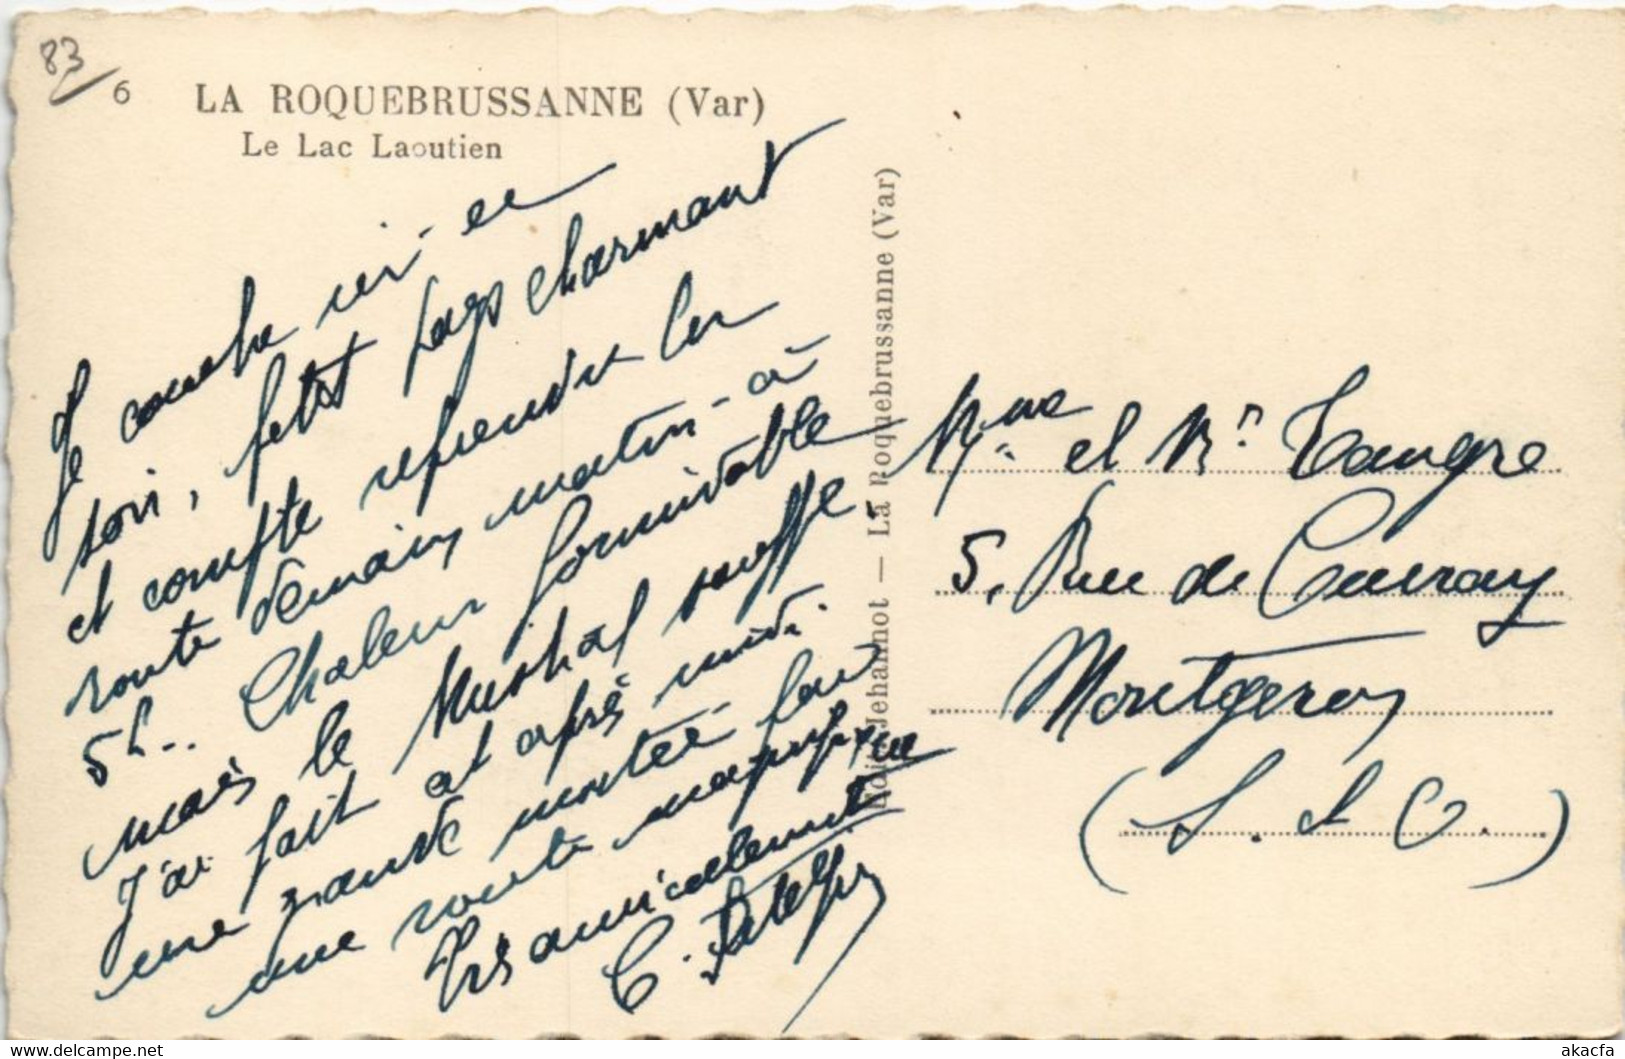 83
6 LA ROQUEBRUSSANNE (Var)
Le Lac Laoutien
Je couche ici - ce
soir, petit pays charmant
et compte reprendre la
route demain matin - à
5h.. Chaleur formidable
mais le Mistral souffle.
J'ai fait cet après midi.
une grande montée par
une route magnifique
Très amicalement
C.
Edit. Jehannot — La Roquebrussanne (Var)
Mme et Mr Tangre
5, Rue de Courcay
Montgeron
(S. et O.)
akacfa